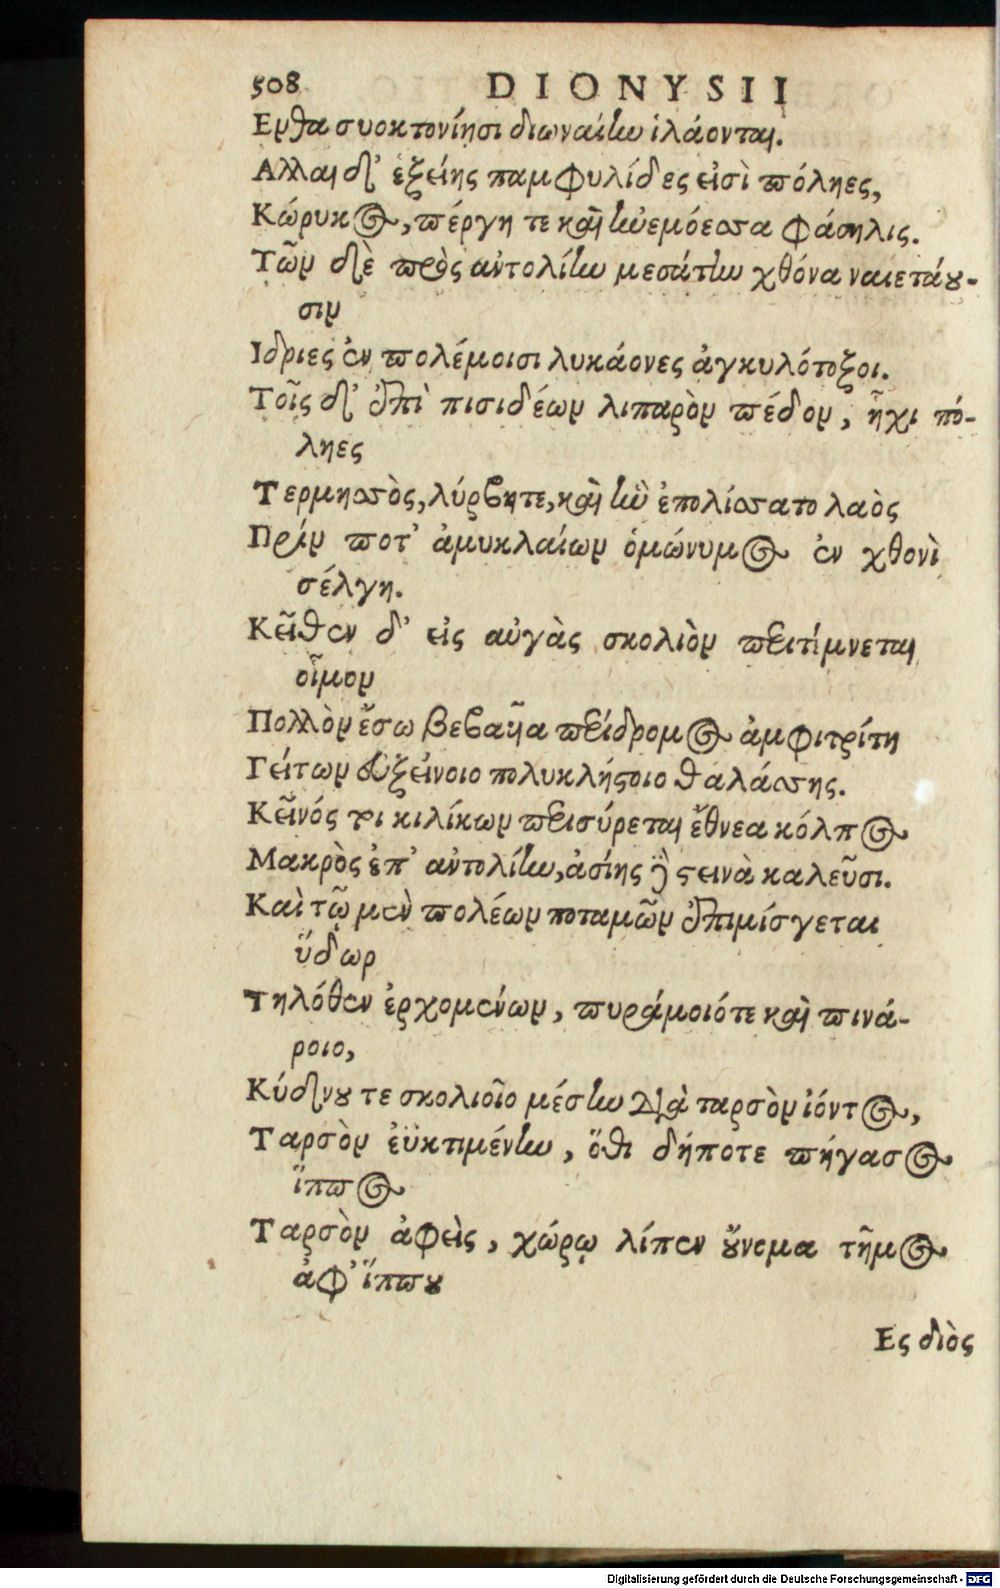 508 DIONYSII
Ενθα συοκτονίησι διωναίην ἱλάονται.
Αλλαι δ' ἑξείης παμφυλίδες εἰσὶ πόληες,
Κώρυκος, πέργη τε καὶ ἠνεμόεσσα φάσηλις.
Τῶν δὲ πρὸς ἀντολίην μεσάτην χθόνα ναιετάου-
σιν
Ιδριες ἐν πολέμοισι λυκάονες ἀγκυλότοξοι.
Τοῖς δ' ἐπὶ πισιδέων λιπαρὸν πέδον, ἧχι πό-
ληες
Τερμησσὸς, λύρβητε, καὶ ἣν ἐπολίσσατο λαὸς
Πρίν ποτ' ἀμυκλαίων ὁμώνυμος ἐν χθονὶ
σέλγη.
Κεῖθεν δ' εἰς αὐγὰς σκολιὸν περιτέμνεται
οἶμον
Πολλὸν ἔσω βεβαυῖα περίδρομος ἀμφιτρίτη
Γείτων εὐξείνοιο πολυκλήϊστοιο θαλάσσης.
Κεῖνός τοι κιλίκων περισύρεται ἔθνεα κόλπος
Μακρὸς ἐπ' ἀντολίην, ἀσίης δὲ στεινὰ καλεῦσι.
Καὶ τῷ μὲν πολέων ποταμῶν ἐπιμίσγεται
ὕδωρ
Τηλόθεν ἐρχομένων, πυράμοιότε καὶ πινά-
ροιο,
Κύδνου τε σκολιοῖο μέσην διὰ ταρσὸν ἰόντος,
Ταρσὸν ἐϋκτιμένην, ὅθι δήποτε πήγασος
ἵππος
Ταρσὸν ἀφεὶς, χώρῳ λίπεν οὔνομα τῆμος
ἀφ' ἵππου
Ες διὸς
Digitalisierung gefördert durch die Deutsche Forschungsgemeinschaft - DFG